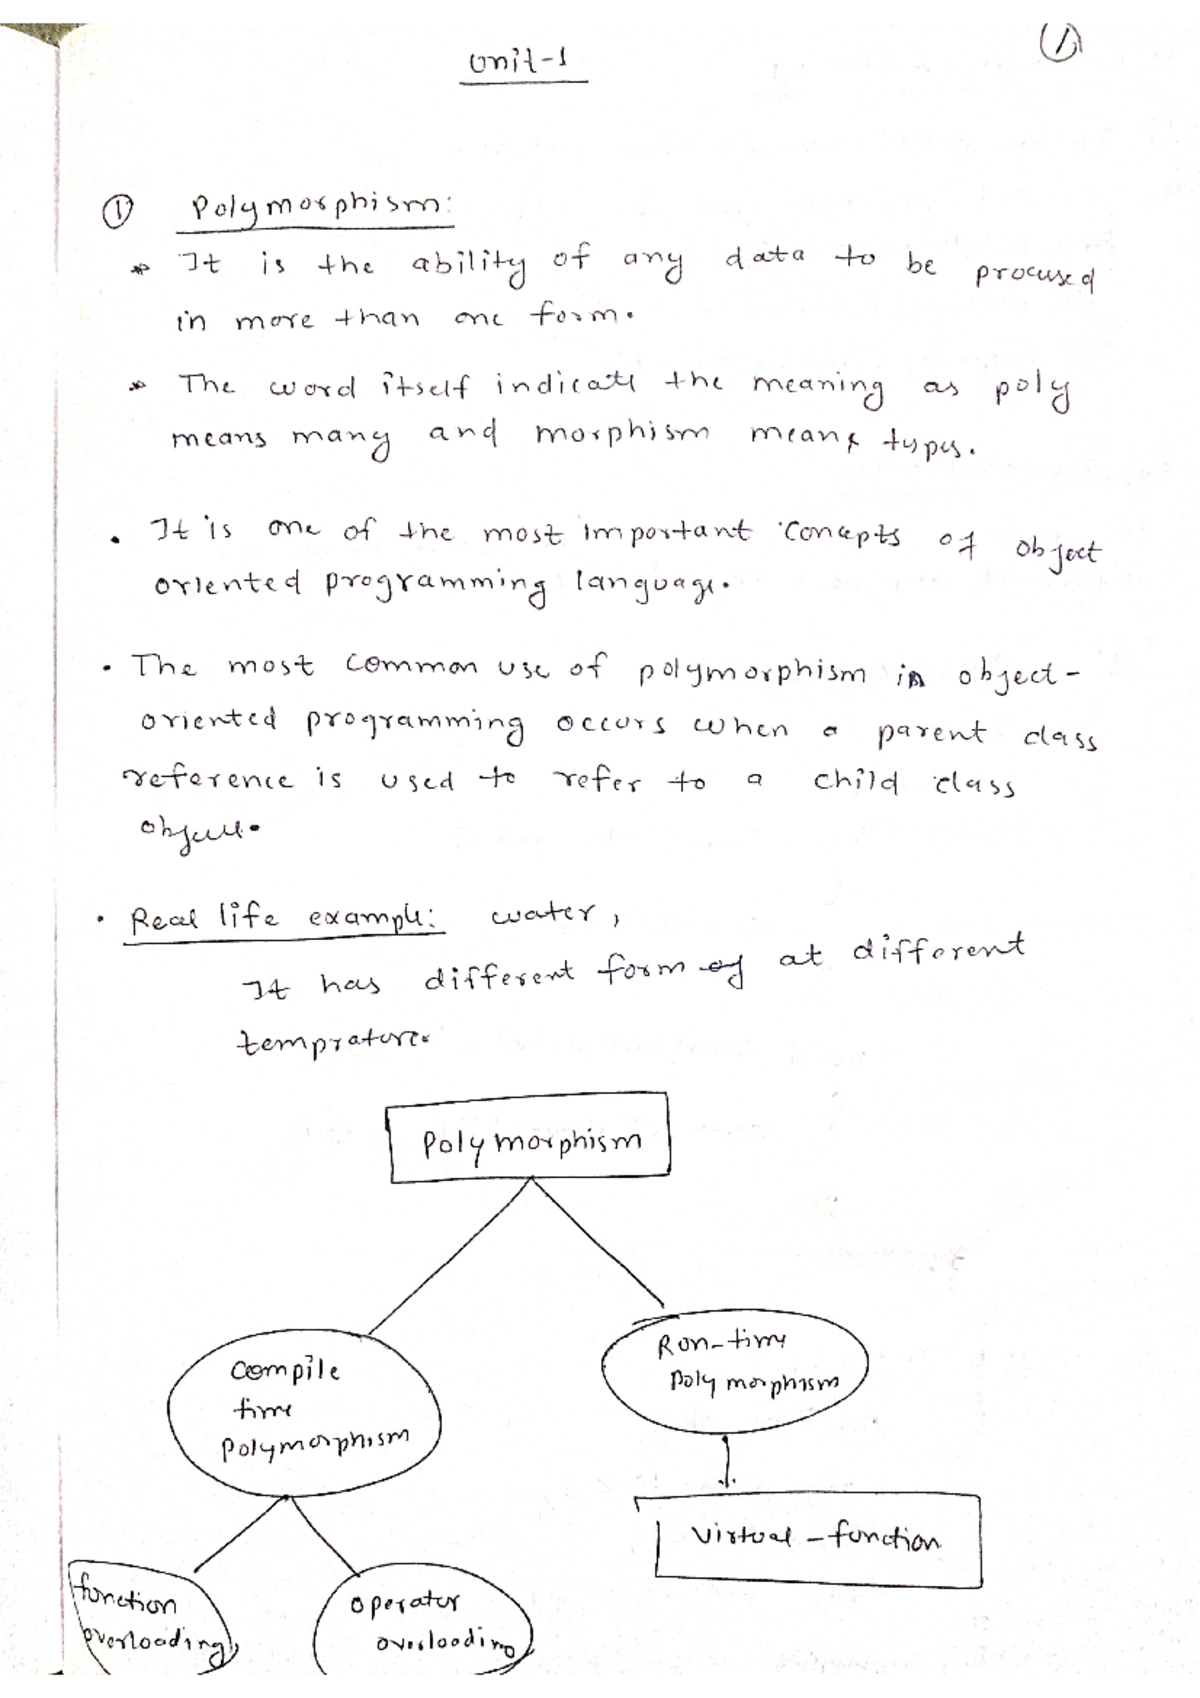 Unit-1
1
① Polymorphism:
* It is the ability of any data to be procused
in more than one form.
* The word itself indicate the meaning as poly
means many and morphism means types.
• It is one of the most important concepts of object
oriented programming language.
• The most common use of polymorphism in object-
oriented programming occurs when a parent class
reference is used to refer to a child class
object.
• Real life example: water,
It has different form of at different
temprature.
Polymorphism
Compile
time
Polymorphism
Run-time
Polymorphism
Virtual-function
function
overloading
operator
overloading